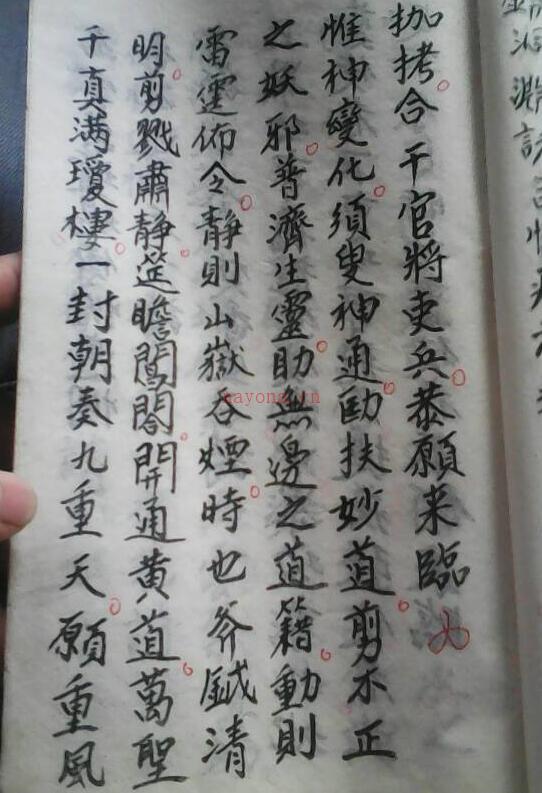 枷拷合干官將吏兵恭願来臨
惟神變化須叟神通勖扶妙道剪不正
之妖邪普濟生靈助無邊之道籍動則
雷霆佈令静則山嶽吞煙時也斧鉞清
明剪戮肅静筵瞻閶閤開通黄道萬聖
千真满瓊樓一封朝奏九重天願重風
nayong.cn